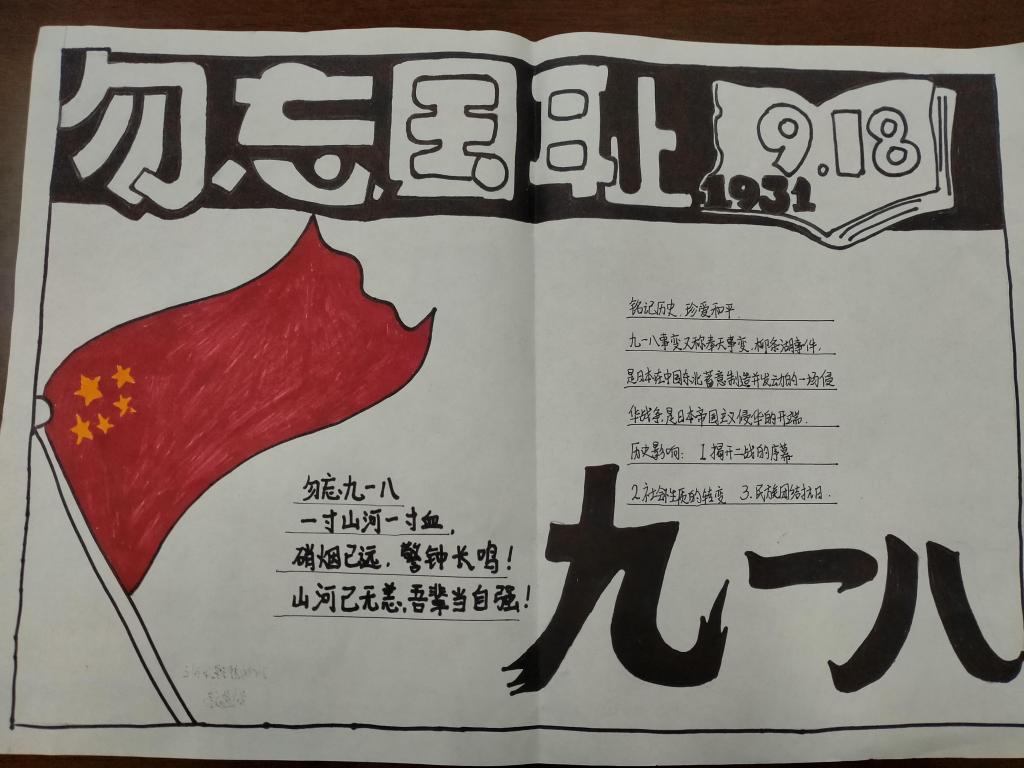 勿忘国耻
9.18
1931
铭记历史.珍爱和平.
九一八事变又称奉天事变.柳条湖事件.
是日本在中国东北蓄意制造并发动的一场侵
华战争.是日本帝国主义侵华的开端.
历史影响: 1揭开二战的序幕
2.社会性质的转变 3.民族团结抗日.
勿忘九一八
一寸山河一寸血,
硝烟已远.警钟长鸣!
山河已无恙,吾辈当自强!
九一八